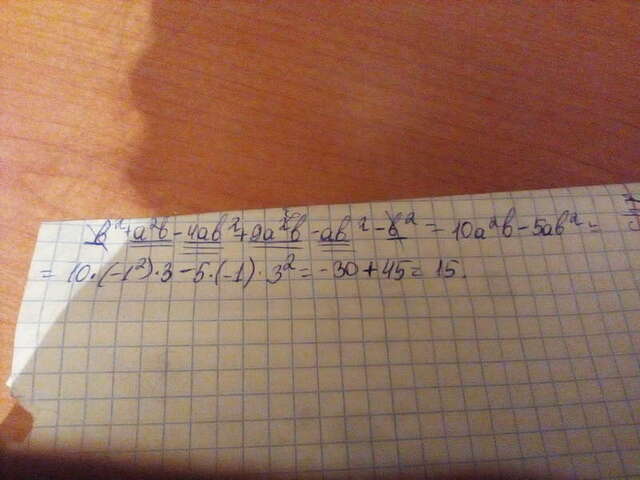 b² + a²b - 4ab² + 9a²b - ab² - b² = 10a²b - 5ab² =
= 10·(-1²)·3 - 5·(-1)·3² = -30 + 45 = 15.